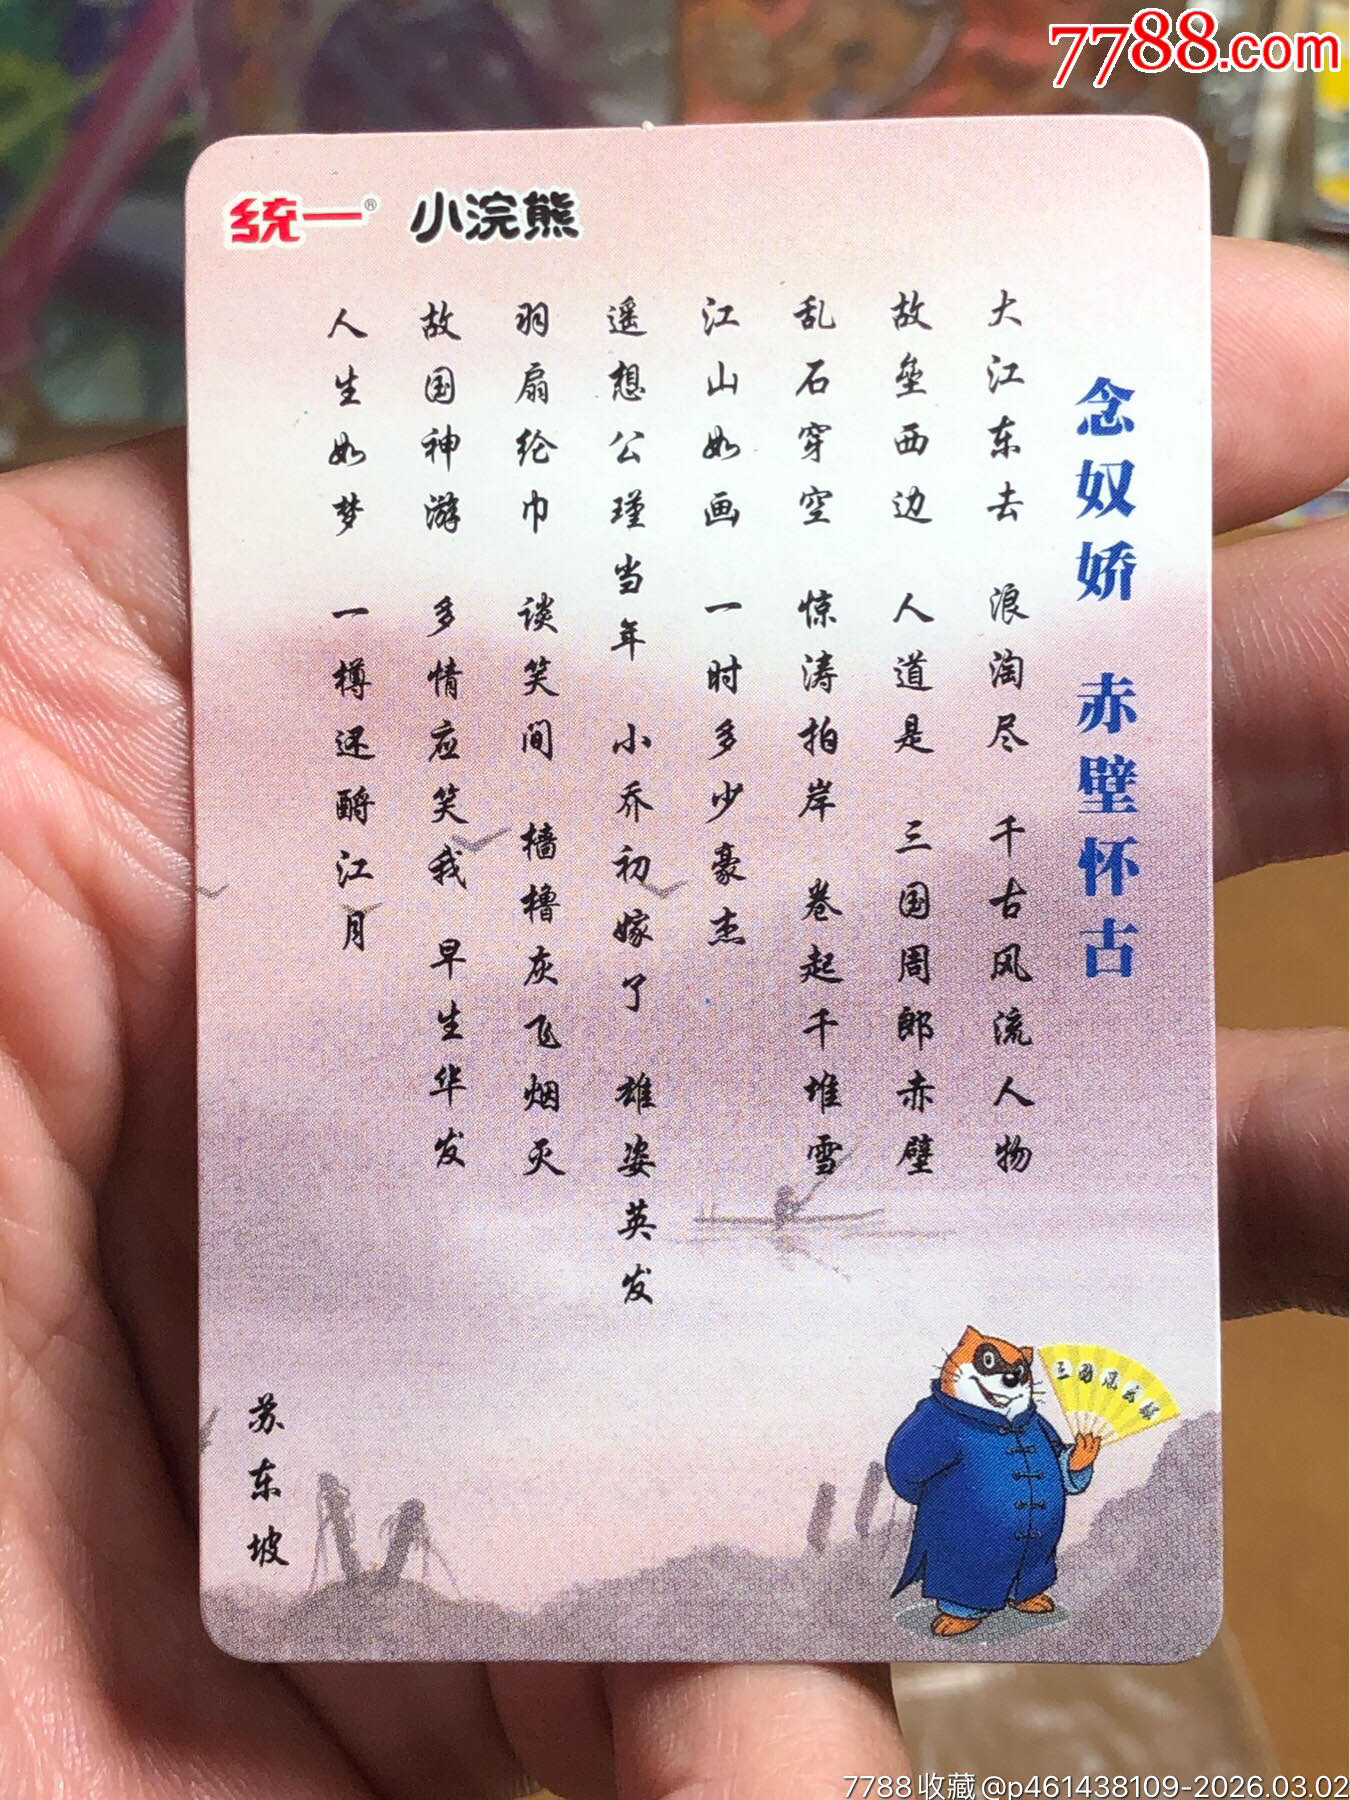 7788.com
統一® 小浣熊
念奴娇 赤壁怀古
大江东去 浪淘尽 千古风流人物
故垒西边 人道是 三国周郎赤壁
乱石穿空 惊涛拍岸 卷起千堆雪
江山如画 一时多少豪杰
遥想公瑾当年 小乔初嫁了 雄姿英发
羽扇纶巾 谈笑间 樯橹灰飞烟灭
故国神游 多情应笑我 早生华发
人生如梦 一樽还酹江月
苏东坡
7788收藏@p461438109-2026.03.02